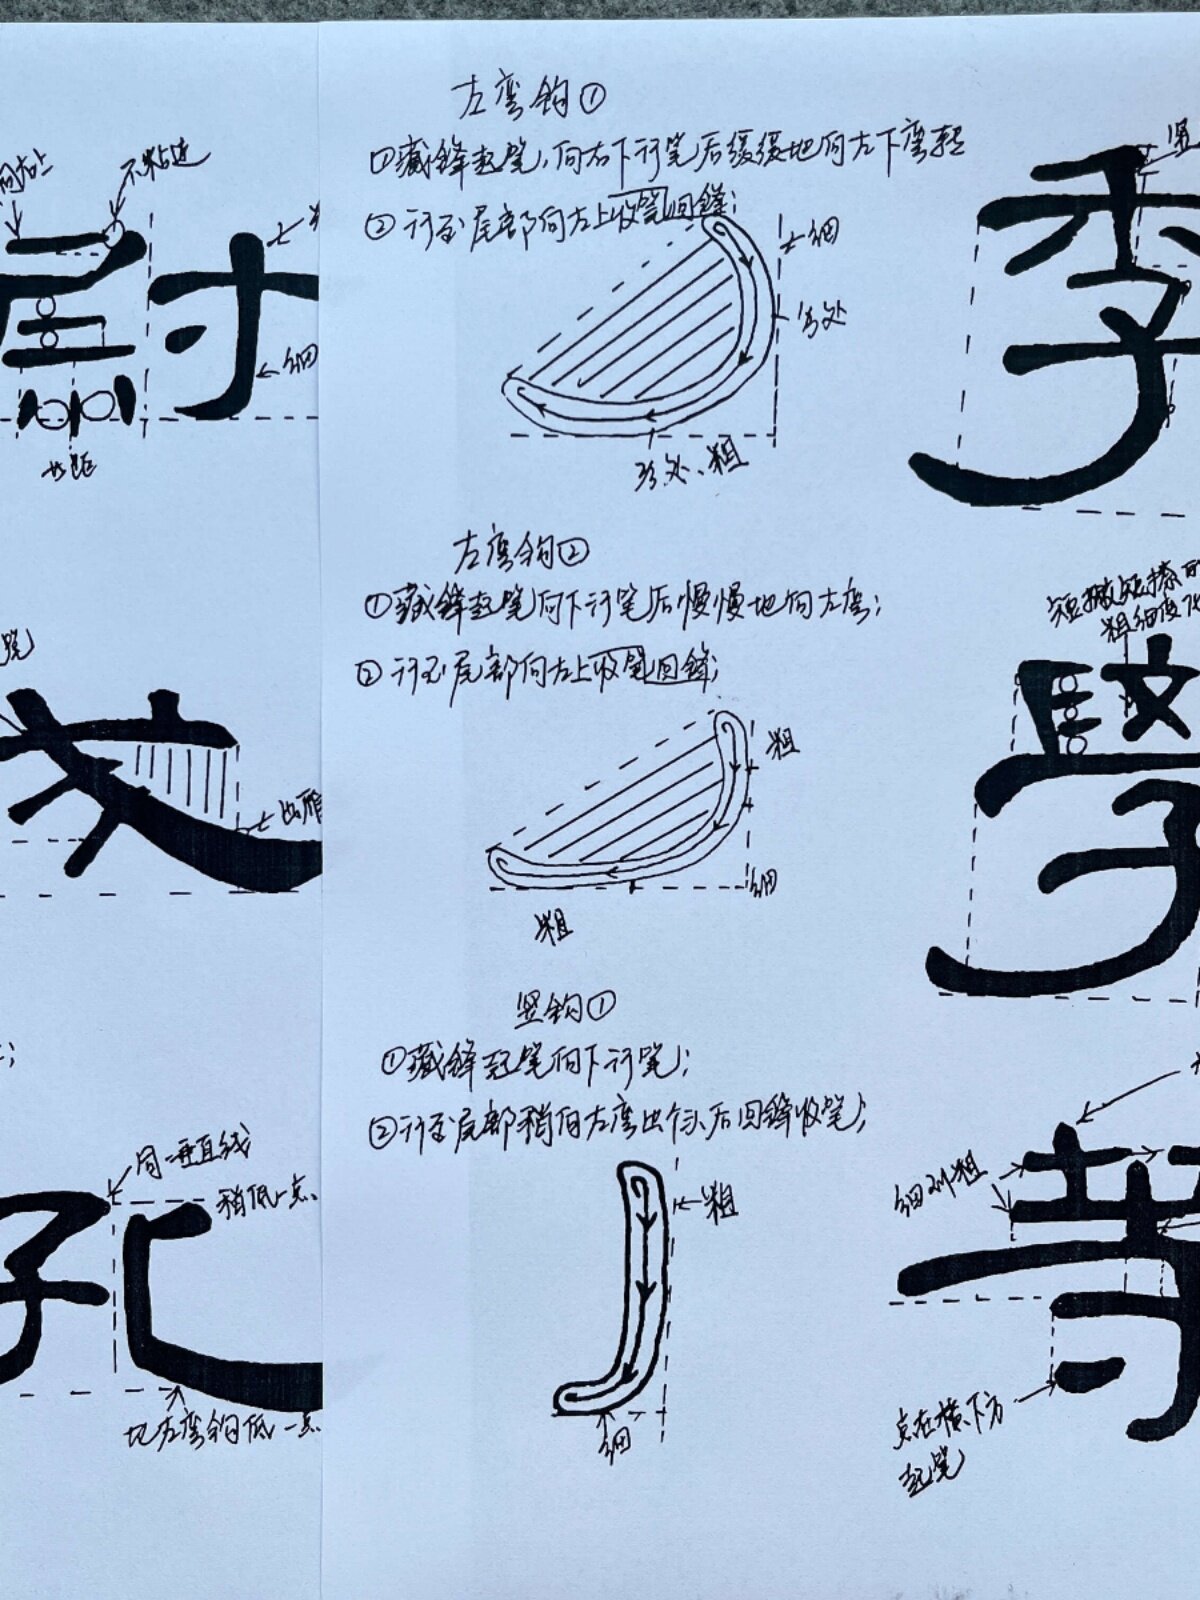 左弯钩①
①藏锋起笔,向右下行笔后缓缓地向左下弯转
②行至尾部向左上收笔回锋;
细
弯处
弯处、粗
左弯钩②
①藏锋起笔向下行笔后慢慢地向左弯;
②行至尾部向左上收笔回锋;
粗
细
粗
竖钩①
①藏锋起笔向下行笔;
②行至尾部稍向左弯出个头后回锋收笔;
粗
细
向右上
不粘边
尉
细
等距
笔
孔
同一垂直线
稍低一点
比左弯钩低一点
季
竖
短撇短捺
粗细变
學
等
细
粗
点在横下方
起笔